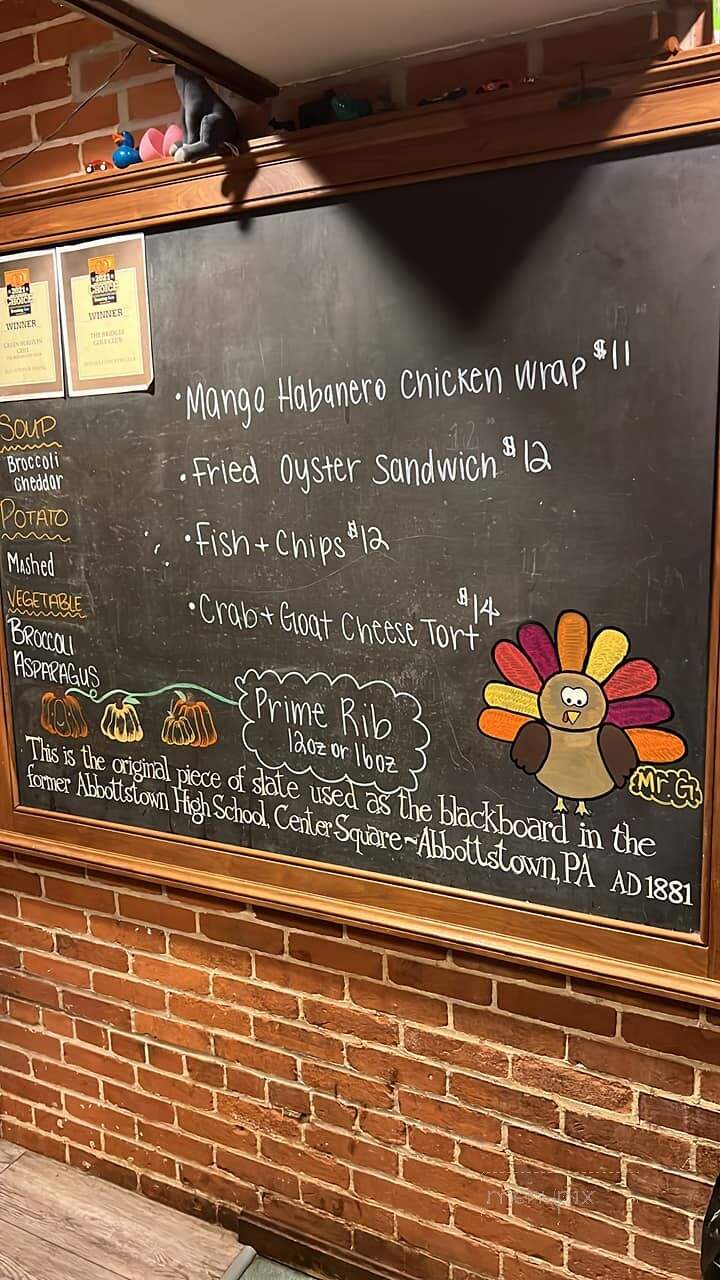 2021
CHOICE
WINNER
2021
CHOICE
WINNER
THE BRIDGES
GOLF CLUB
• Mango Habanero Chicken Wrap $11
• Fried Oyster Sandwich $12
• Fish + Chips $12
• Crab + Goat Cheese Tort $14
SOUP
Broccoli
Cheddar
POTATO
Mashed
VEGETABLE
BROCCOLI
ASPARAGUS
Prime Rib
12oz or 16oz
Mr. G
This is the original piece of slate used as the blackboard in the
former Abbottstown High School, Center Square ~ Abbottstown, PA AD 1881
menupix